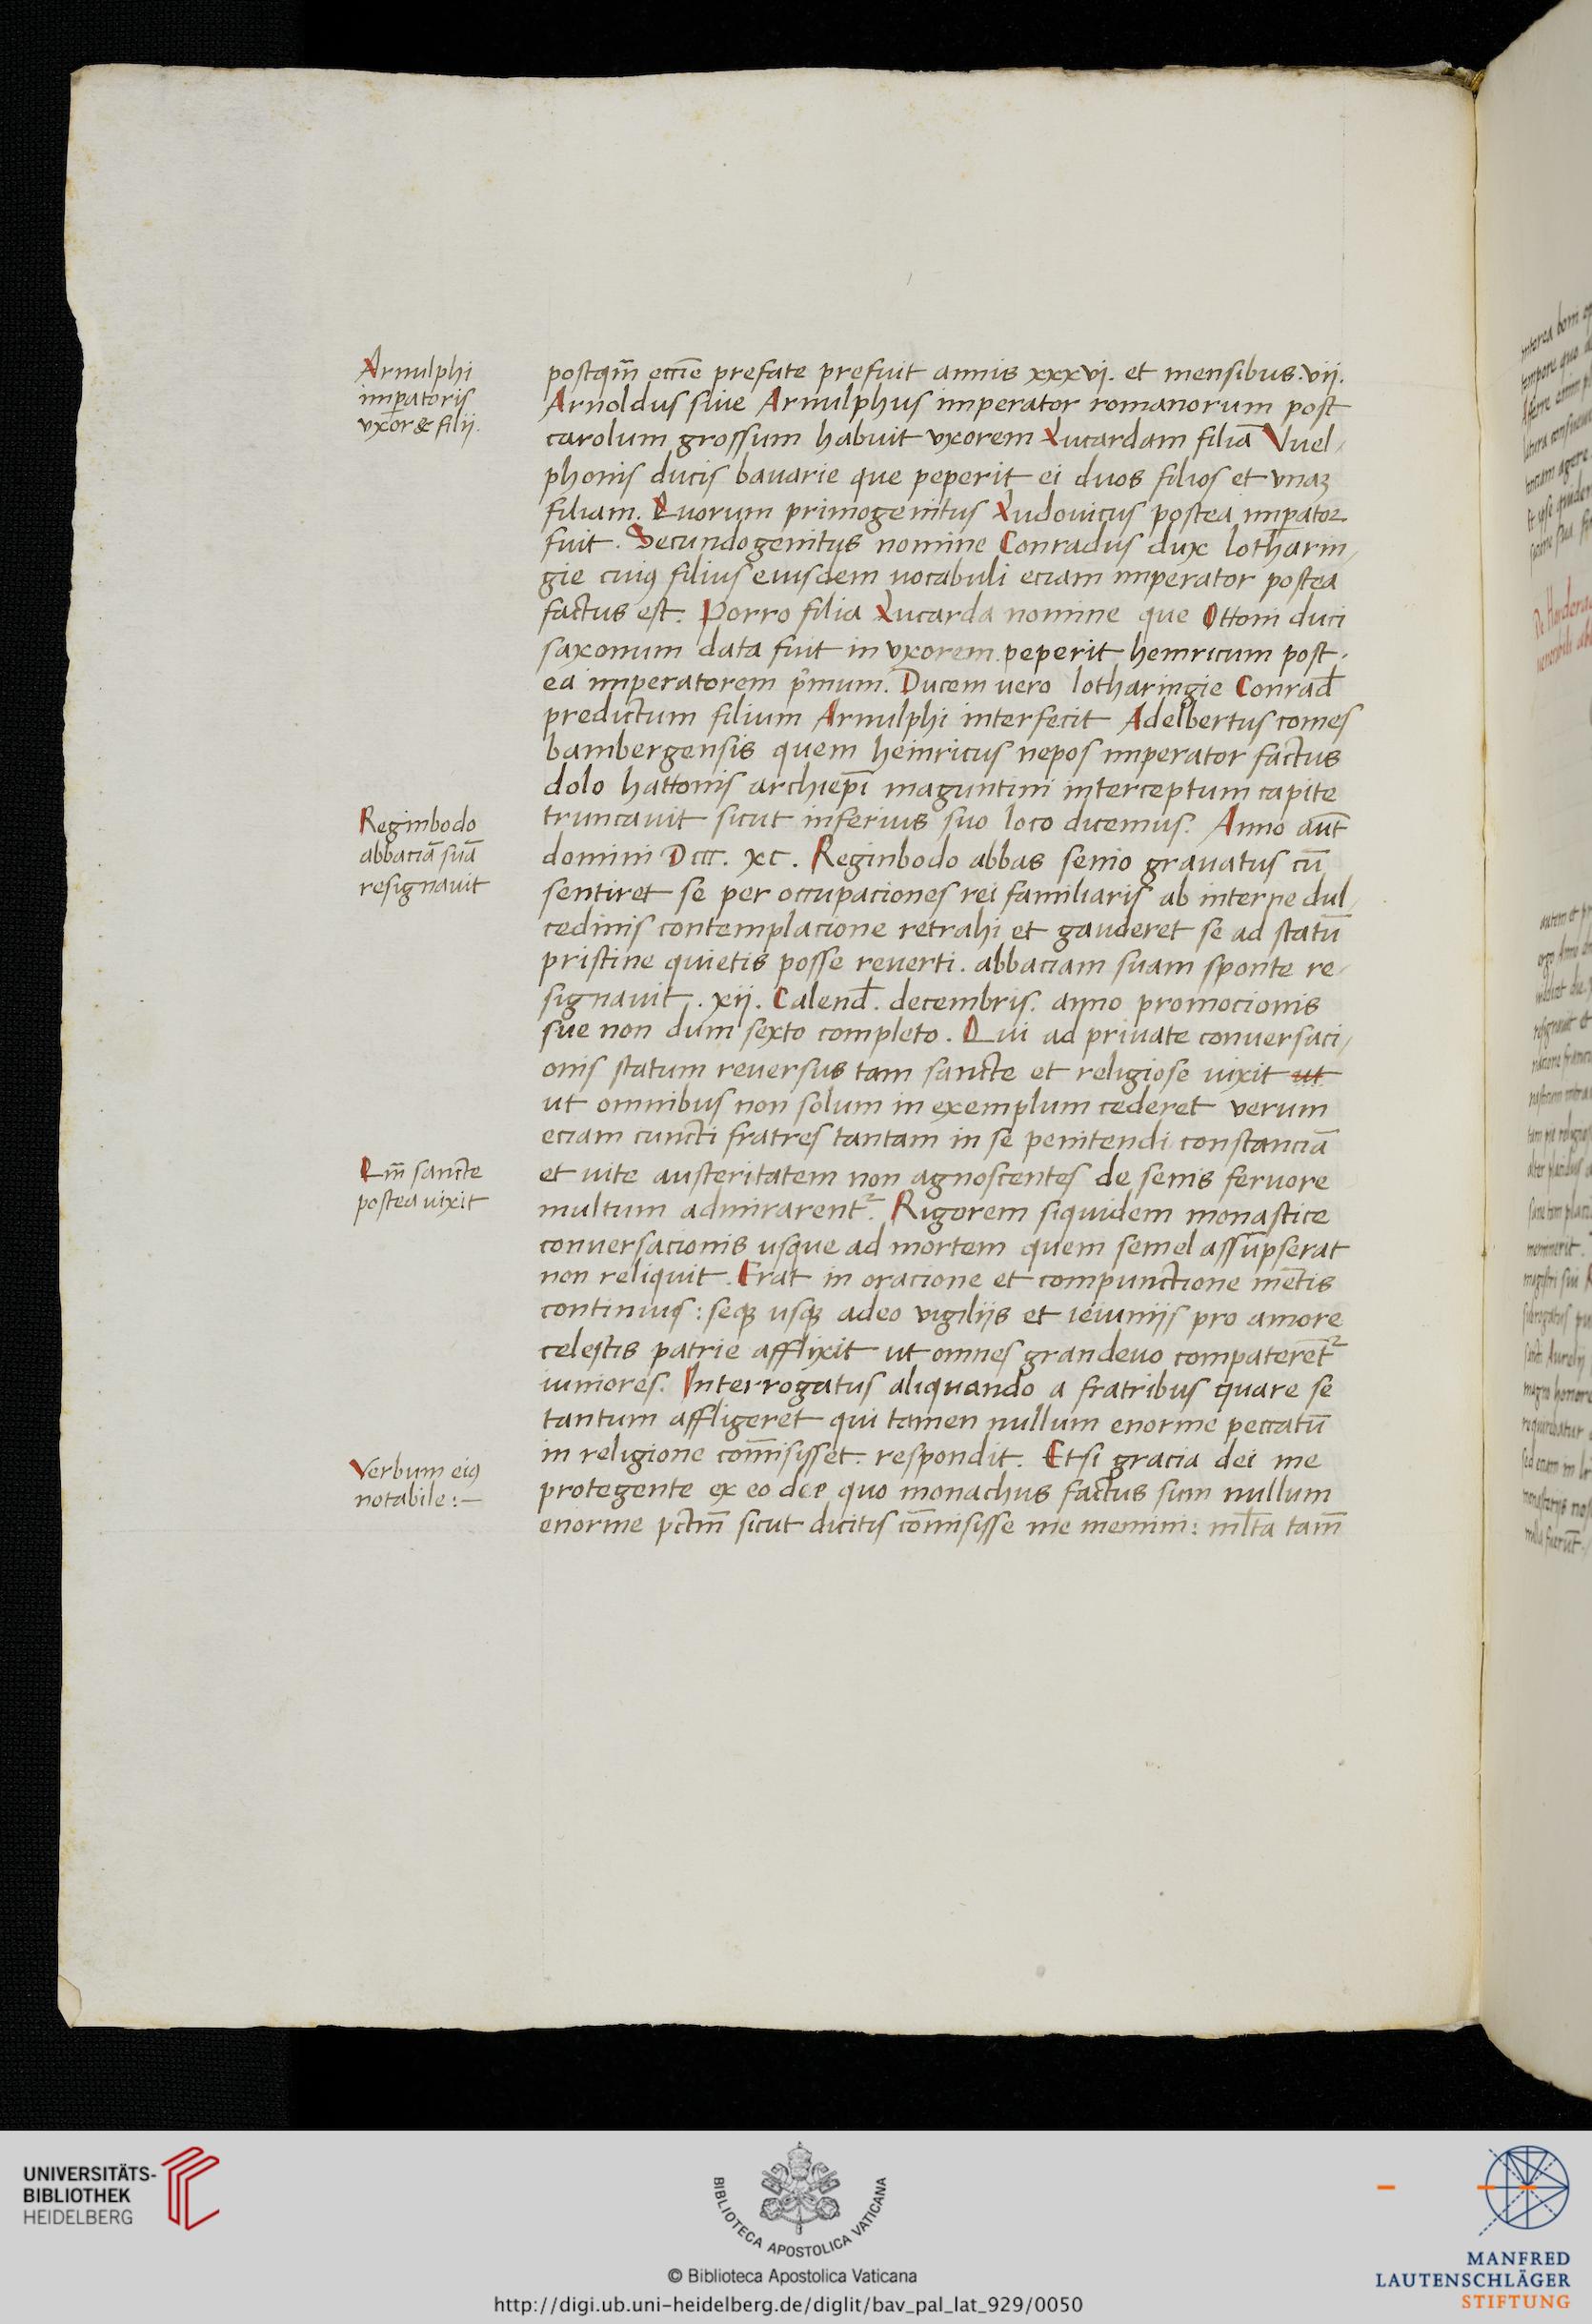 Arnulphi
imp̱atoris
vxor & filij.
postqm̄ eccīe prefate prefuit annis xxxvj. et mensibus. vij.
Arnoldus siue Arnulphus imperator romanorum post
carolum grossum habuit vxorem Lucardam filiā Vuel-
phonis ducis bauarie que peperit ei duos filios et vnaꝫ
filiam. Quorum primogenitus Ludouicus postea imp̱ator
fuit. Secundogenitus nomine Conradus dux lotharin-
gie cuiꝰ filius eiusdem uocabuli eciam imperator postea
factus est. Porro filia Lucarda nomine que Ottoni duci
saxonum data fuit in vxorem peperit heinricum post-
ea imperatorem p̄mum. Ducem uero lotharingie Conrad̄
predictum filium Arnulphi interfecit Adelbertus comes
bambergensis quem heinricus nepos imperator factus
dolo hattonis archiep̄i maguntini interceptum capite
Reginbodo
abbaciā suā
resignauit
truncauit sicut inferius suo loco dicemus. Anno aut̄
domini Dccc. xc. Reginbodo abbas senio grauatus cū
sentiret se per occupaciones rei familiaris ab interne dul-
cedinis contemplacione retrahi et gauderet se ad statū
pristine quietis posse reuerti. abbaciam suam sponte re-
signauit. xij. Calend̄. decembris. anno promocionis
sue non dum sexto completo. Qui ad priuate conuersaci-
onis statum reuersus tam sancte et religiose uixit ut
ut omnibus non solum in exemplum cederet verum
eciam cuncti fratres tantam in se penitendi constanciā
Qm̄ sancte
postea uixit
et uite austeritatem non agnoscentes de senis feruore
multum admirarentᷣ. Rigorem siquidem monastice
conuersacionis usque ad mortem quem semel assūpserat
non reliquit. Erat in oracione et compunctione mētis
continuus: seqꝫ usqꝫ adeo vigilijs et ieiunijs pro amore
celestis patrie afflixit ut omnes grandeuo compaterētᷣ
iuniores. Interrogatus aliquando a fratribus quare se
tantum affligeret qui tamen nullum enorme peccatū
Verbum eiꝰ
notabile:—
in religione com̄isisset. respondit. Etsi gracia dei me
protegente ex eo die quo monachus factus sum nullum
enorme pctm̄ sicut dicitis com̄isisse me memini: ml̄ta tam̄
UNIVERSITÄTS-
BIBLIOTHEK
HEIDELBERG
BIBLIOTECA APOSTOLICA VATICANA
© Biblioteca Apostolica Vaticana
http://digi.ub.uni-heidelberg.de/diglit/bav_pal_lat_929/0050
MANFRED
LAUTENSCHLÄGER
STIFTUNG